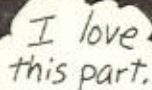 I love
this part.